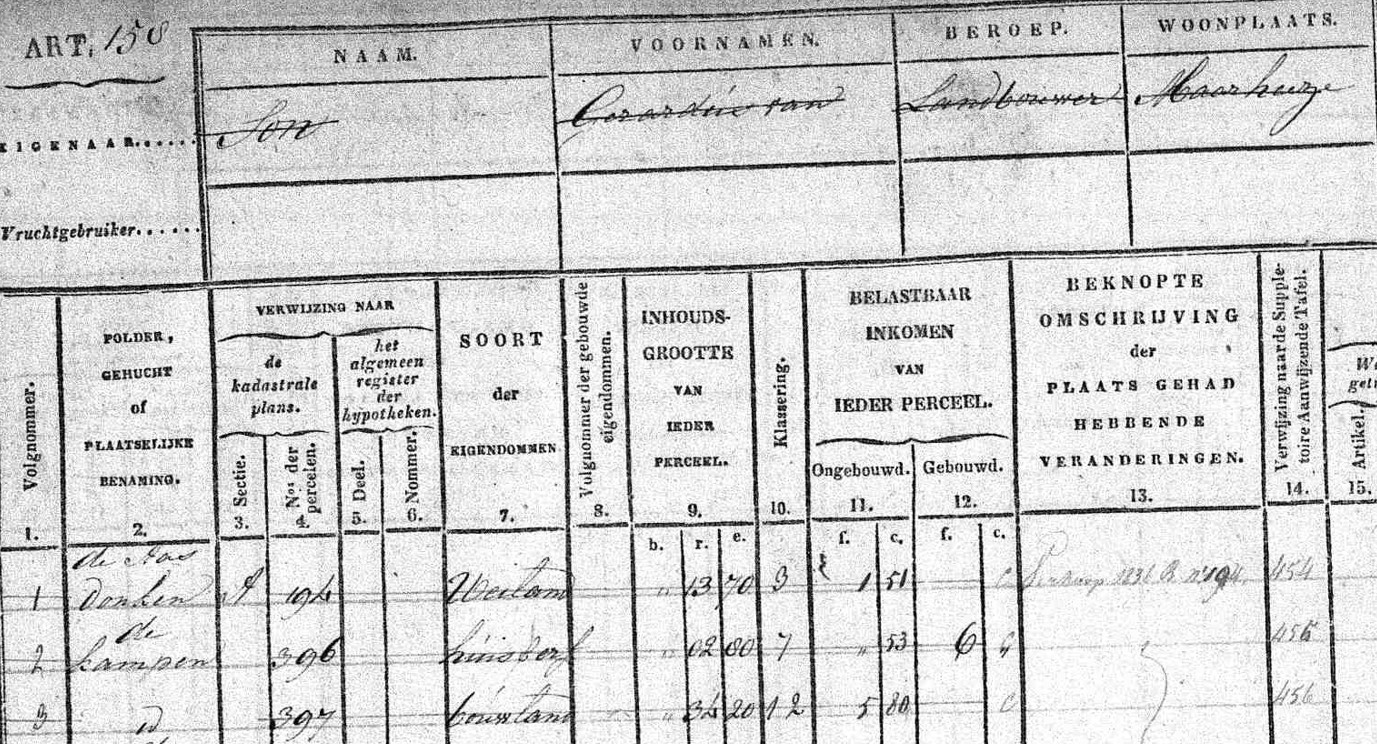 ART. 158
NAAM. VOORNAMEN. BEROEP. WOONPLAATS.
EIGENAAR...... Son Gerardus van Landbouwer Maarheeze
Vruchtgebruiker......
Volgnommer.
1.
POLDER,
GEHUCHT
of
PLAATSELIJKE
BENAMING.
2.
VERWIJZING NAAR
de
kadastrale
plans.
het
algemeen
register
der
hypotheken.
Sectie.
3.
Nos der
percelen.
4.
Deel.
5.
Nommer.
6.
SOORT
der
EIGENDOMMEN
7.
Volgnommer der gebouwde
eigendommen.
8.
INHOUDS-
GROOTTE
VAN
IEDER
PERCEEL.
9.
Klassering.
10.
BELASTBAAR
INKOMEN
VAN
IEDER PERCEEL.
Ongebouwd.
11.
Gebouwd.
12.
BEKNOPTE
OMSCHRIJVING
der
PLAATS GEHAD
HEBBENDE
VERANDERINGEN.
13.
Verwijzing naar de Supple-
toire Aanwijzende Tafel.
14.
Artikel.
15.
b. r. e. f. c. f. c.
de
1 Donken A 194 Weiland " 13 70 3 1 51 454
de
2 kampen 396 huis & erf " 02 80 7 " 53 6 " 455
3 id 397 bouwland " 34 20 1 2 5 80 456